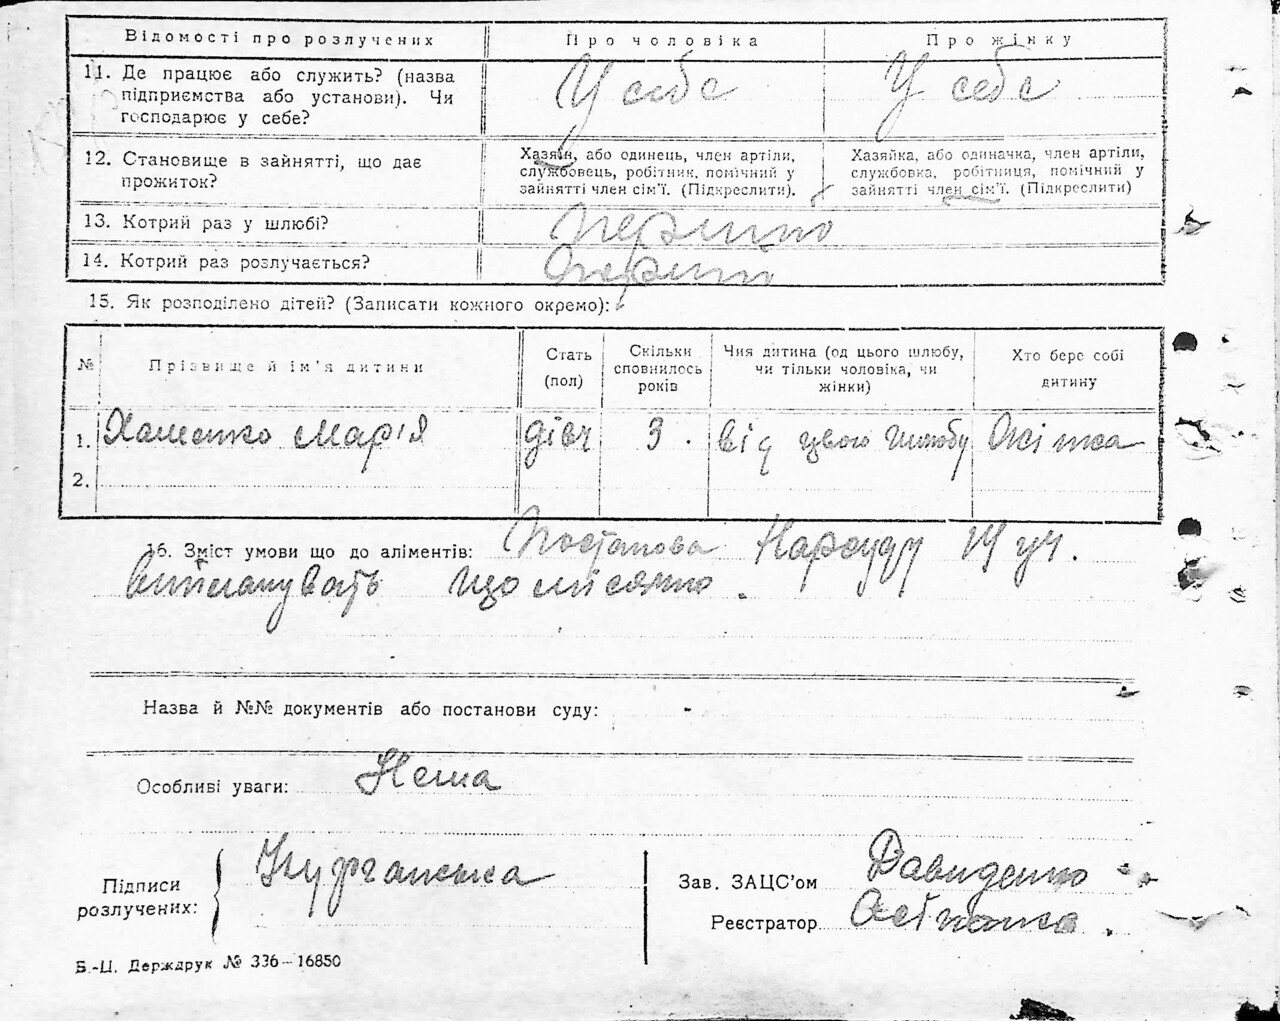 Відомості про розлучених Про чоловіка Про жінку
11. Де працює або служить? (назва підприємства або установи). Чи господарює у себе? У себе У себе
12. Становище в зайнятті, що дає прожиток?
Хазяїн, або одинець, член артіли, службовець, робітник, помічний у зайнятті член сім'ї. (Підкреслити).
Хазяйка, або одиначка, член артіли, службовка, робітниця, помічний у зайнятті член сім'ї. (Підкреслити)
13. Котрий раз у шлюбі?
14. Котрий раз розлучається?
15. Як розподілено дітей? (Записати кожного окремо):
№ Прізвище й ім'я дитини Стать (пол) Скільки сповнилось років Чия дитина (од цього шлюбу, чи тільки чоловіка, чи жінки) Хто бере собі дитину
1. Хоменко Марія дівч 3. від цього шлюбу Жінка
2.
16. Зміст умови що до аліментів: Постанова Нарсуду уч.
виплачувать що місячно.
Назва й №№ документів або постанови суду: -
Особливі уваги: Нема
Підписи розлучених: Курганська
Зав. ЗАЦС'ом Давиденко
Реєстратор
Б.-Ц. Держдрук № 336—16850